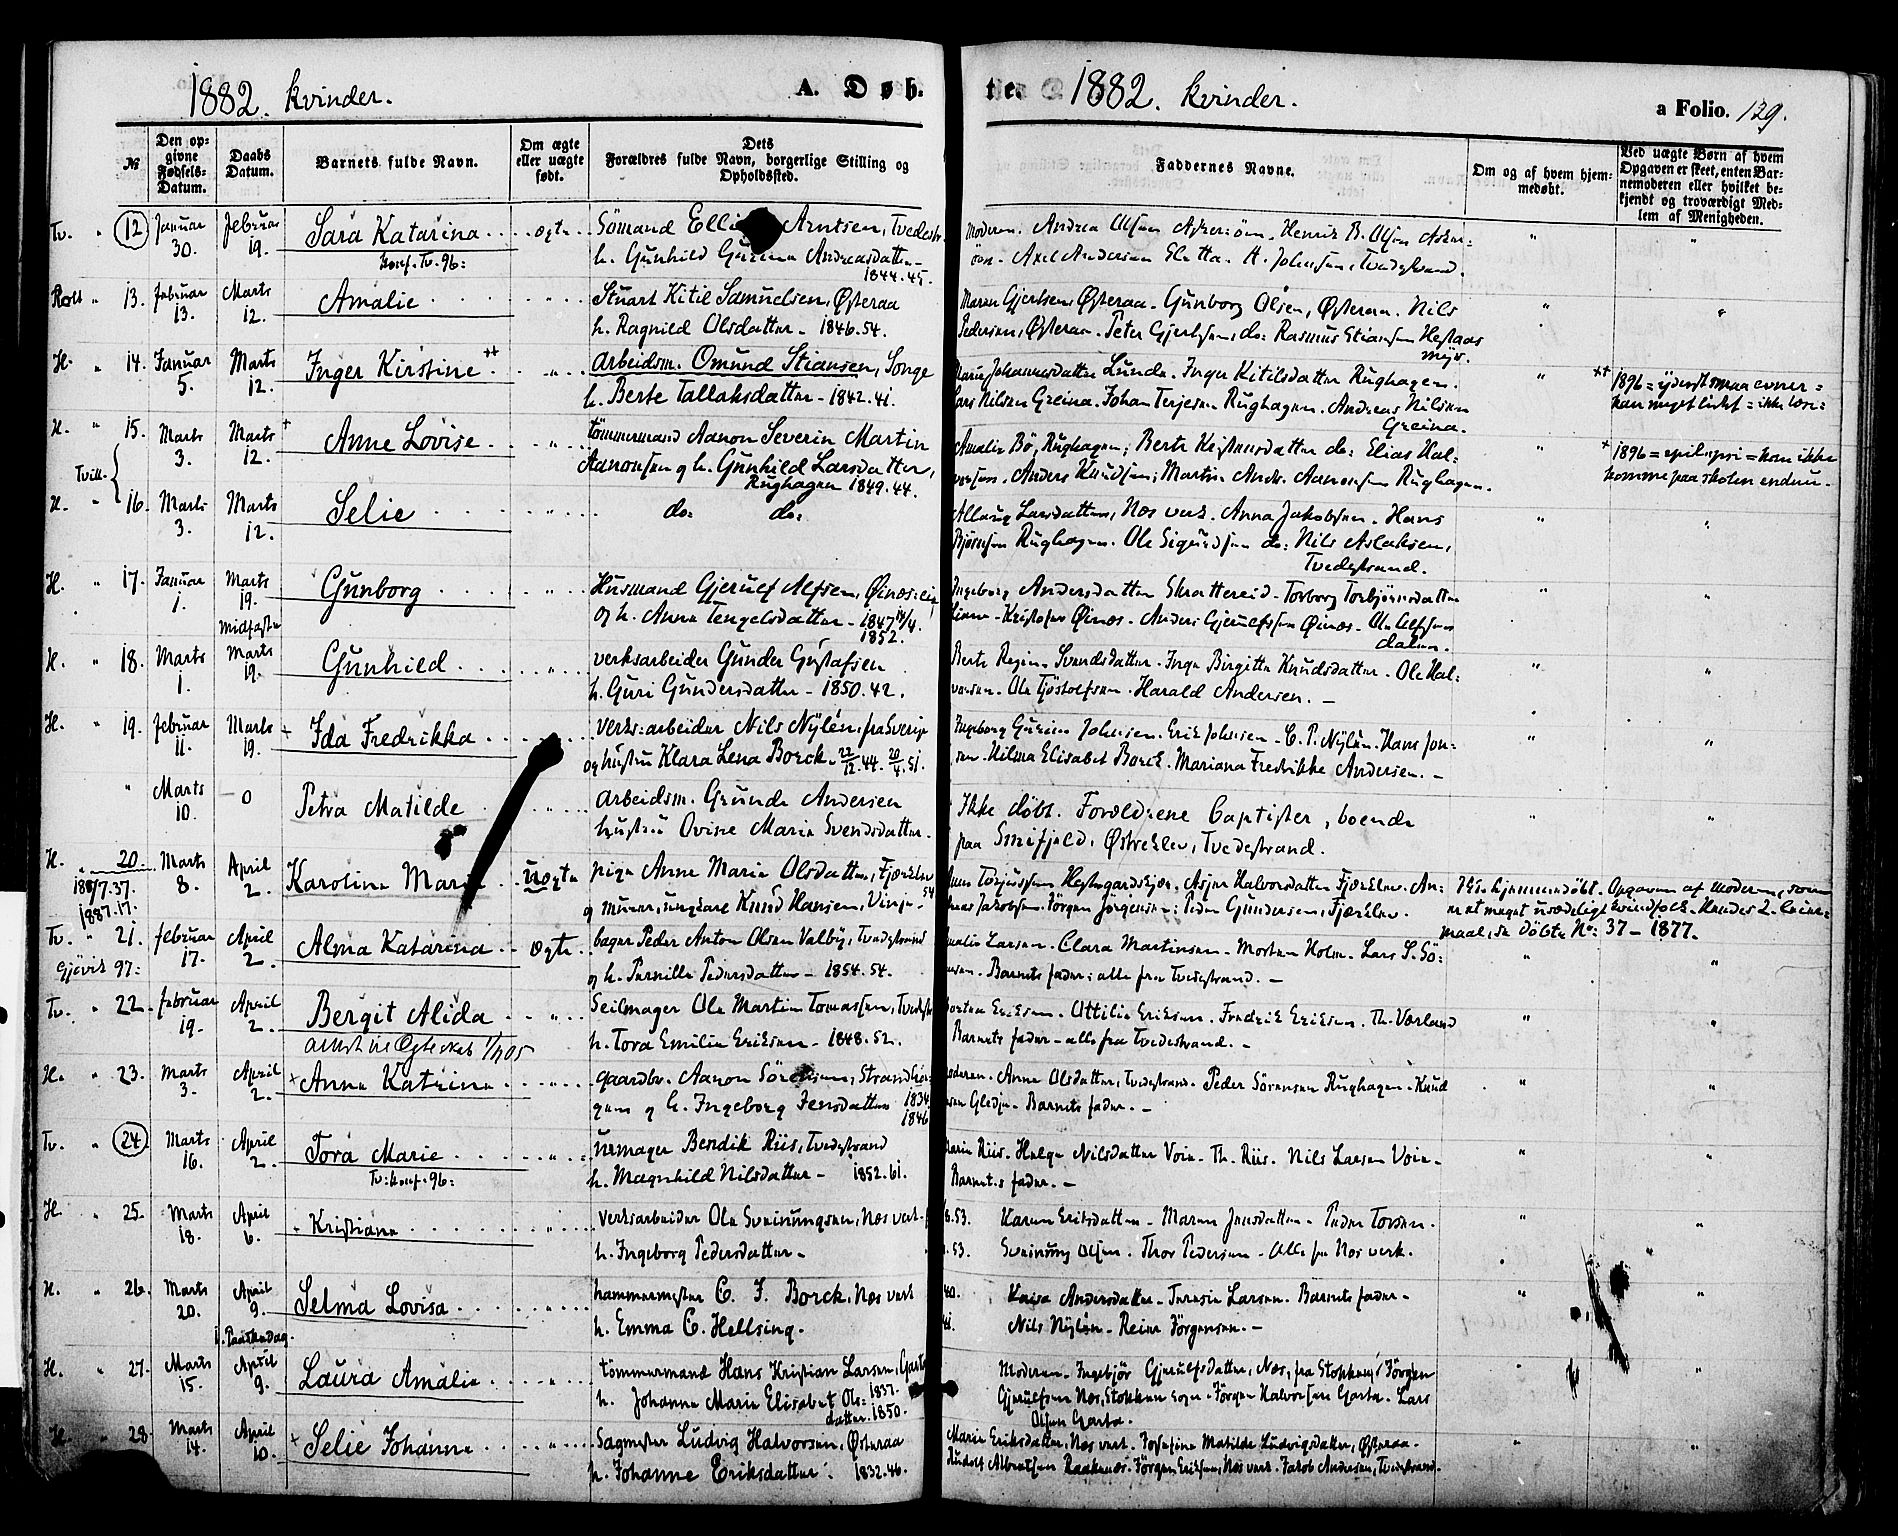 1882. kvinder.
A. Døb-
te.
1882. kvinder.
a Folio. 139.
№
Den opgivne Fødsels-Datum.
Daabs Datum.
Barnets fulde Navn.
Om ægte eller uægte født.
Dets Forældres fulde Navn, borgerlige Stilling og Opholdssted.
Faddernes Navne.
Om og af hvem hjemmedøbt.
Ved uægte Børn af hvem Opgaven er skeet, enten Barnemoderen eller hvilket bekjendt og troværdigt Medlem af Menigheden.
Tv. " 12 Januar 30. Februar 19. Sara Katarina ægte Sömand Arntsen, Tvedestr.
Konf. Tv. 96:
h. Gunhild Andreasdatter
1844. 45.
Moderen. Andrea Olsen Askerøen. Henrik B. Olsen
Axel Andersen H. Johnsen, Tvedestrand.
Holt " 13. Februar 13. Marts 12. Amalie " Stuart Kitil Samuelsen, Østeraa
h. Ragnild Olsdatter - 1846. 54.
Maren Gjertsen, Østeraa. Gunborg Olsen, Østeraa. Nils
Pedersen, Østeraa. Peter Gjertsen, do: Rasmus Stiansen
myr.
H. " 14. Januar 5. Marts 12. Inger Kirstine ++ " Arbeidsm. Omund Stiansen, Songe
h. Berte Tallaksdatter - 1842. 41.
Marie Johannesdatter Lunde. Inger Kitilsdatter Rughagen.
Lars Nilsen Greina. Johan Terjesen Rughagen. Andreas Nilsen
Greina.
++ 1896 = yderst smaa evner =
kan meget lidet = ikke læse =
H. " 15. Marts 3. Marts 12. + Anne Lovise " tömmermand Aanon Severin Martin
Aanonsen og h. Gunhild Larsdatter,
Rughagen 1849. 44.
Amalie Bø, Rughagen; Berte do: Elias Hal-
vorsen. Anders Knudsen; Martin Andr. Aanonsen Rughagen.
+ 1896 = epilepsi = kan ikke
komme paa skolen endnu.
Tvill.
H. " 16. Marts 3. Marts 12. Selie " do: do:
Allaug Larsdatter, Næs verk. Anna Jakobsen. Hans
Bjørnsen Rughagen. Ole Sigurdsen do: Nils Aslaksen,
Tvedestrand.
H. " 17. Januar 1. Marts 19. Midfaste Gunborg " Husmand Gjerulf Alfsen, Øinæs:eie
og h. Anne Tengelsdatter - 1847 14/4.
1852.
Ingeborg Andersdatter Skrattereid. Torborg Torbjørnsdatter
Kristofer Øinæs. Anders Gjerulfsen Øinæs. Ole Alfsen
dalen.
H. " 18. Marts 1. Marts 19. Gunhild " verksarbeider Gunder Gustafsen
h. Guri Gundersdatter - 1850. 42.
Berte Regine Svendsdatter. Inga Birgitte Knudsdatter. Ole Hal-
vorsen. Ole Tjöstolfsen. Harald Andersen. -
H. " 19. Februar 11. Marts 19. + Ida Fredrikka verks:arbeider Nils Nylén, fra Sverige
og hustru Klara Lena Borck. 22/12. 44. 20/4. 51.
Ingeborg Gurine Johnsen. Erik Johnsen. C. P. Nylén. Hans Jon-
sen. Hilma Elisabet Borck. Mariana Fredrikke Andersen. -
" Marts 10. - o Petra Matilde " Arbeidsm. Grunde Andersen
hustru Ovine Marie Svendsdatter.
Ikke døbt. Forældrene Baptister, boende
paa Smifjeld, Østrehlev, Tvedestrand.
H. " 20. Marts 8. April 2. Karoline Marie uægte pige Anne Marie Olsdatter, Fjærehlev
1877. 37.
1887. 17.
og murer, ungkarl Knud Hansen, - 54
Asjer Halvorsdatter Fjærehlev. An-
dreas Jakobsen. Jörgen Jörgensen; Peder Gundersen, Fjærehlev.
Ikke hjemmedøbt. Opgaven af moderen, som
er et meget usædeligt kvindfolk. Hendes 2. leier-
maal, se døbte No: 37 - 1877.
Tv. " 21. Februar 17. April 2. Alma Katarina ægte bager Peder Anton Olsen Valby, Tvedestrand
Gjövik 97:
og h. Pernille Pedersdatter - 1854. 54.
Amalie Larsen. Clara Martinsen. Morten Holm. Lars S. Sö-
rensen. Barnets fader; alle fra Tvedestrand. -
Tv. " 22. Februar 19. April 2. Bergit Alida " Seilmager Ole Martin Tomassen, Tvedestr
attest til Ægteskab 1/4 05
h. Tora Emilie Eriksen - 1848. 52.
Eriksen. Ottilie Eriksen. Fredrik Eriksen. Th. Værland
Barnets fader - alle fra Tvedestrand. -
H. " 23. Marts 3. April 2. + Anna Katrina " gaardbr. Aanon Sörensen,
og h. Ingeborg Jensdatter 1834
1846
Moderen. Anne Olsdatter, Tvedestrand. Peder Sörensen Rughagen. Knud
Barnets fader. -
Tv. " 24 Marts 16. April 2. Tora Marie " urmager Bendik Riis, Tvedestrand
Tv: Konf. 96:
h. Magnhild Nilsdatter - 1852. 61.
Marie Riis. Helga Nilsdatter Voie. Th. Riis. Nils Larsen Voie.
Barnets fader. -
H. " 25. Marts 18. April 6. Kristiane " verksarbeider Ole Sveinungsen, Næs verk.
h. Ingeborg Pedersdatter -
53. Karen Eriksdatter - Maren Jensdatter - Peder Torsen.
53. Sveinung Olsen. Thor Pedersen - Alle fra Næs verk.
H. " 26. Marts 20. April 9. 1. Paaskedag. Selma Lovisa " hammermester C. J. Borck, Næs verk
h. Emma C. Hellsing.
40. Kaisa Andersdatter - Teresia Larsen. Barnets fader -
41. Nils Nylén - Reier Jörgensen. -
H. " 27. Marts 15. April 9. Laura Amalie " tömmermand Hans Kristian Larsen, Garta
h. Johanne Marie Elisabet Ols- 1857.
datter. 1850.
Moderen. Ingebjör Gjerulfsdatter, Næs, fra Stokken; Jörgen
Gjerulfsen Næs, Stokken sogn. Jörgen Halvorsen Garta. Lars
Olsen Garta.
H. " 28 Marts 14. April 10. + Selie Johanne " Sagmester Ludvig Halvorsen, Østeraa
h. Johanne Eriksdatter. 1832. 46.
Marie Eriksdatter, Næs verk. Josefine Matilde Ludvigsdatter, Østeraa.
Rudolf Albretsen Raaknæs. Jörgen Eriksen, Næs verk. Jakob Andersen, Tvedestrand.